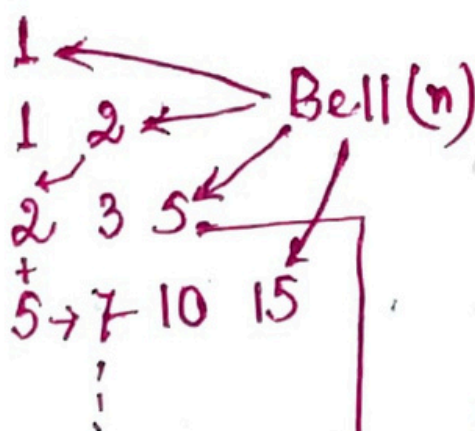 1
Bell(n)
1 2
2 3 5
+
5 → 7 10 15